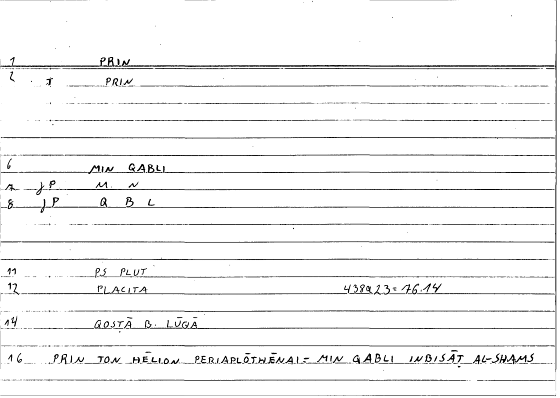 1 PRIN
2 J PRIN
6 MIN QABLI
7 JP M N
8 JP Q B L
11 PS PLUT
12 PLACITA 438a23=76.14
14 QOSṬĀ B. LŪQĀ
16 PRIN TON HĒLION PERIAPLŌTHĒNAI = MIN QABLI INBISĀṬ AL-SHAMS